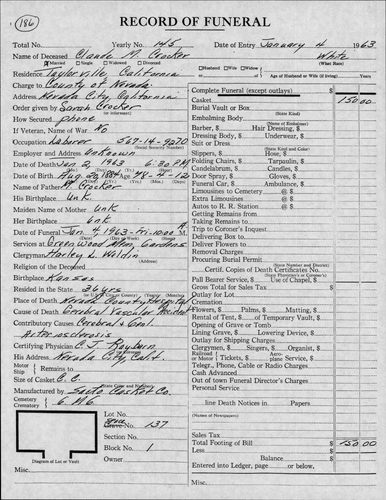 186
RECORD OF FUNERAL
Total No. Yearly No. 145 Date of Entry January 4 1963
Name of Deceased Claude M. Crocker White
Married Single Widowed Divorced (What Race)
Residence Taylorville, California Husband Wife Widow
of Age of Husband or Wife (if living) Years
Charge to County of Nevada
Nevada City California
Order given by Sarah Crocker
(or informant)
How Secured phone
If Veteran, Name of War No
Occupation Laborer 567-14-9270
(Social Security Number)
Employer and Address Unknown
Date of Death Jan 2, 1963 6:30 PM
Date of Birth Aug 20, 1884 Age 78-4-12
(Yrs.) (Mos.) (Days)
Name of Father M. Crocker
His Birthplace Unk.
Maiden Name of Mother Unk
Her Birthplace Unk
Date of Funeral Jan 4 1963-Fri-1000 A
Services at Greenwood Mem. Gardens
Clergyman Harley L. Weldin
(Address)
Religion of the Deceased
Birthplace Kansas
Resided in the State 36 yrs
Place of Death Nevada County Hospital
Cause of Death Cerebral Vascular Accident
Contributory Causes Cerebral & Genl.
Arteriosclerosis
Certifying Physician C J Rayburn
His Address Nevada City, Calif.
Motor
Ship Remains to
Size of Casket C. C.
Manufactured by Sacto Casket Co.
Cemetery
Crematory G. M. G.
Lot No.
Grave No. 137
Section No.
Block No. 1
Owner
Diagram of Lot or Vault
Misc.
Complete Funeral (except outlays) $
Casket 150.00
Burial Vault or Box
(State Kind)
Embalming Body
(Name of Embalmer)
Barber, $ Hair Dressing, $
Dressing Body, $ Underwear, $
Suit or Dress
(State Kind and Color)
Slippers, $ Hose, $
Folding Chairs, $ Tarpaulin, $
Candelabrum, $ Candles, $
Door Spray, $ Gloves, $
Funeral Car, $ Ambulance, $
Limousines to Cemetery @ $
Extra Limousines @ $
Autos to R. R. Station @ $
Getting Remains from
Taking Remains to
Trip to Coroner's Inquest
Delivering Box to
Deliver Flowers to
Removal Charges
Procuring Burial Permit
(State Number and District)
Certif. Copies of Death Certificates No.
Pall Bearer Service, $ Use of Chapel, $
Gross Total for Sales Tax $
Outlay for Lot
Cremation
Flowers, $ Palms, $ Matting, $
Rental of Tent, $ of Temporary Vault, $
Opening of Grave or Tomb
Lining Grave, $ Lowering Device, $
Outlay for Shipping Charges
Clergymen, $ Singers, $ Organist, $
Railroad or Motor Tickets, $ Aeroplane Service, $
Telegr., Phone, Cable or Radio Charges
Cash Advanced
Out of town Funeral Director's Charges
Personal Service
line Death Notices in Papers
(Names of Newspapers)
Sales Tax
Total Footing of Bill $ 150.00
Less $
Balance $
Entered into Ledger, page or below.
Misc.